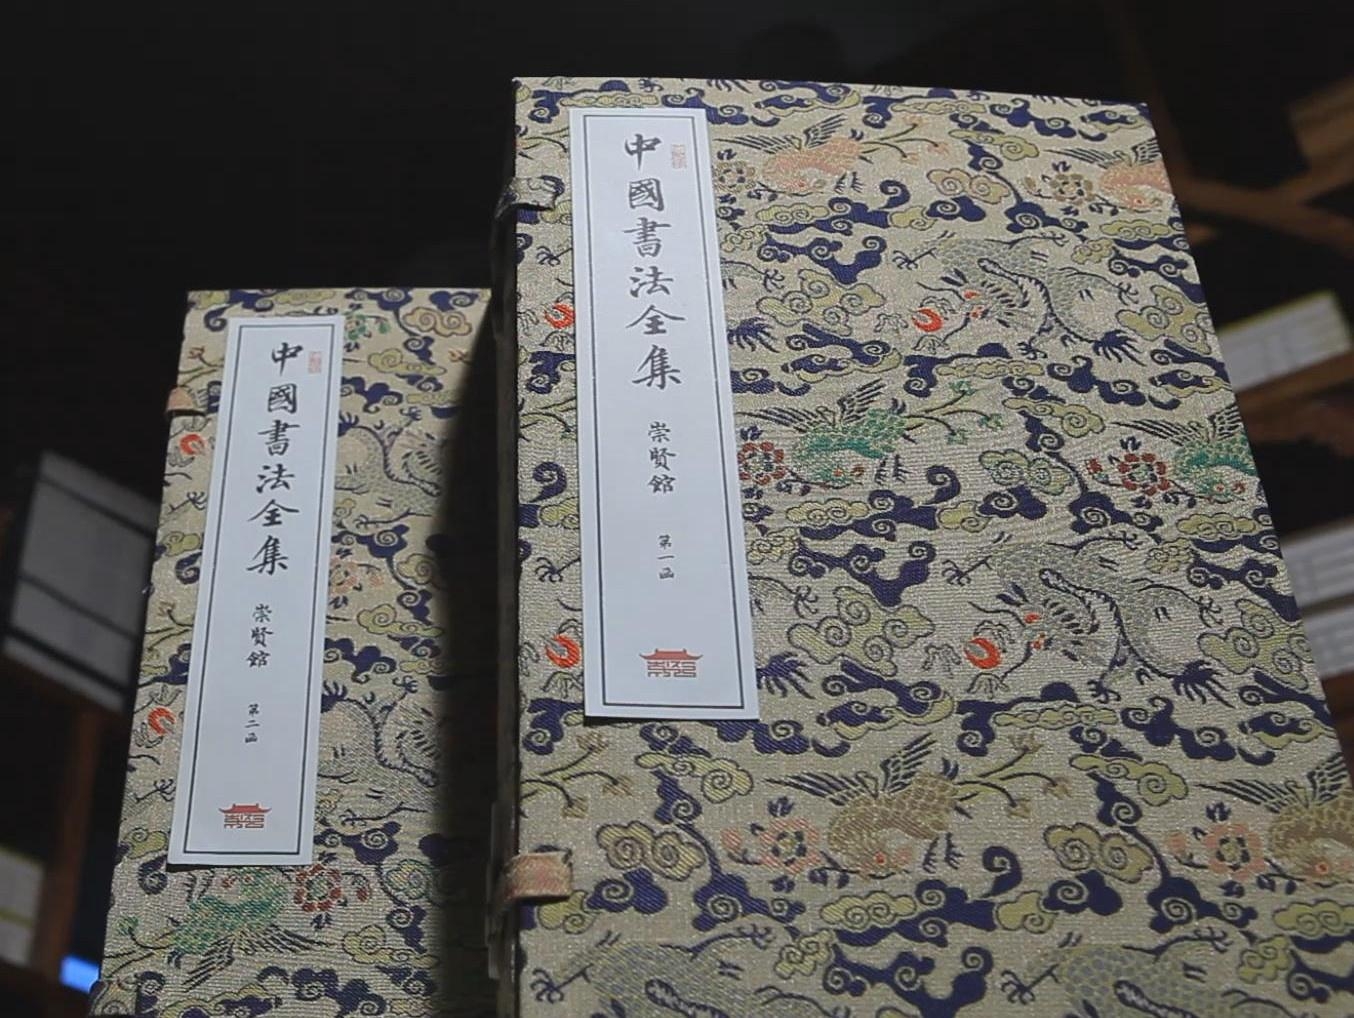 中國書法全集
崇贤館
第一函
中國書法全集
崇贤館
第二函